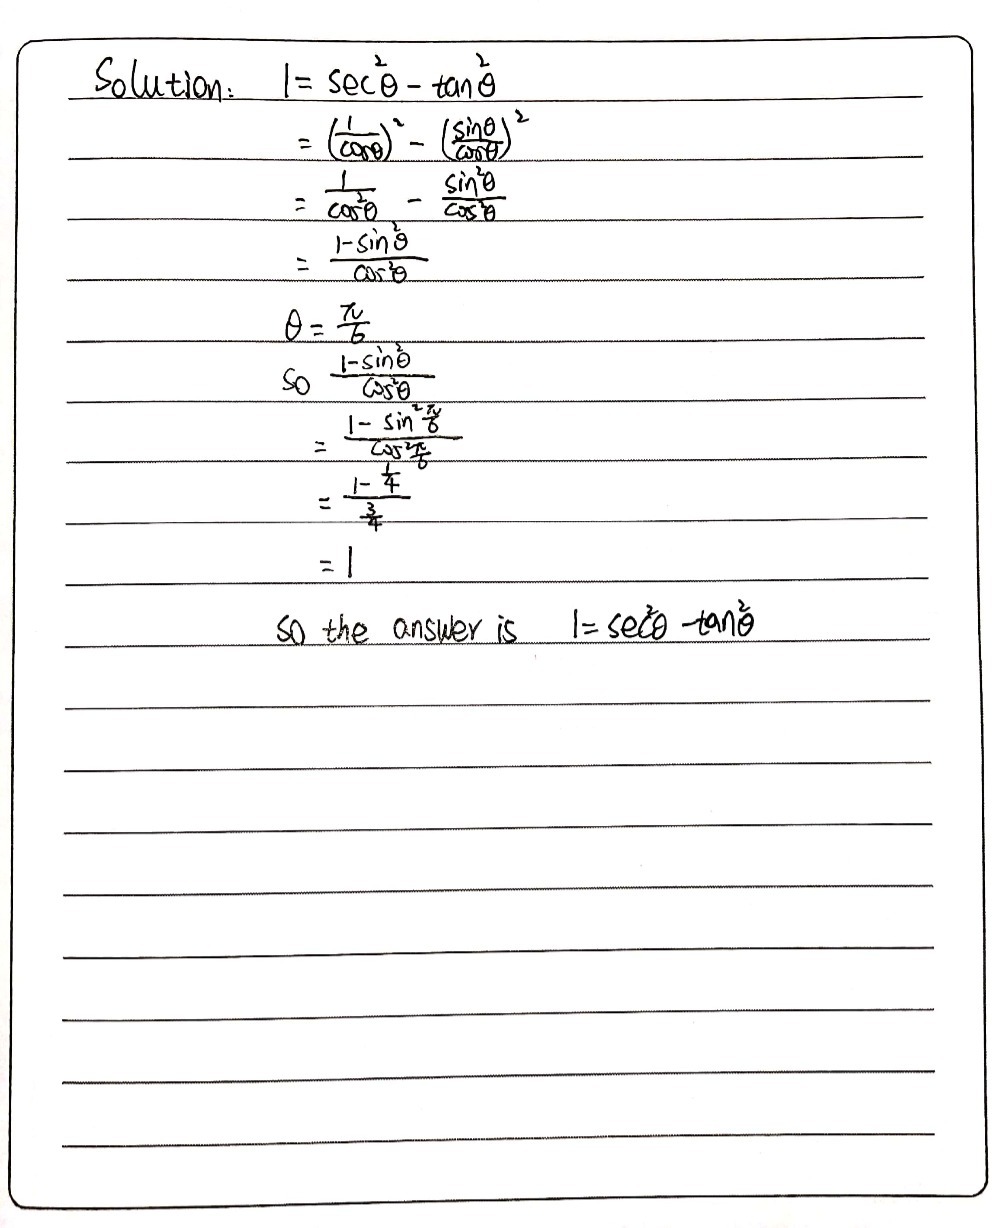 Solution: 1 = sec²θ - tan²θ
= (1/cosθ)² - (sinθ/cosθ)²
= 1/cos²θ - sin²θ/cos²θ
= 1-sin²θ/cos²θ
θ = π/6
so 1-sin²θ/cos²θ
= 1- sin²π/6/cos²π/6
= 1-1/4/3/4
= 1
so the answer is 1 = sec²θ - tan²θ